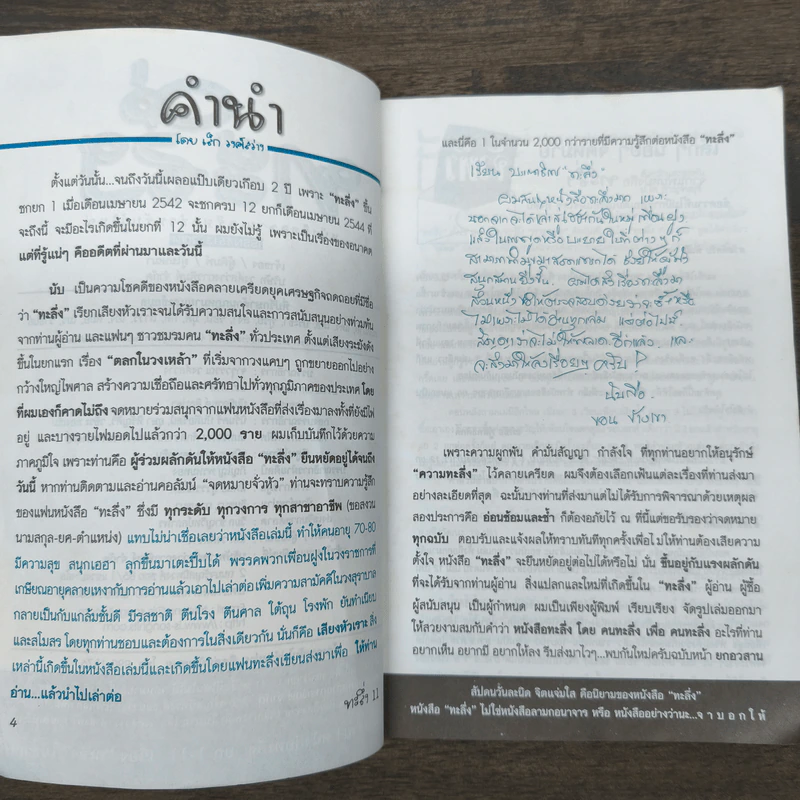 คำนำ
โดย เล็ก วงศ์สว่าง
ตั้งแต่วันนั้น...จนถึงวันนี้เผลอแป๊บเดียวเกือบ 2 ปี เพราะ "ทะลึ่ง" ขึ้น
ชกยก 1 เมื่อเดือนเมษายน 2542 จะชกครบ 12 ยกก็เดือนเมษายน 2544 ที่
จะถึงนี้ จะมีอะไรเกิดขึ้นในยกที่ 12 นั้น ผมยังไม่รู้ เพราะเป็นเรื่องของอนาคต
แต่ที่รู้แน่ๆ คืออดีตที่ผ่านมาและวันนี้
นับ เป็นความโชคดีของหนังสือคลายเครียดยุคเศรษฐกิจถดถอยที่มีชื่อ
ว่า "ทะลึ่ง" เรียกเสียงหัวเราะจนได้รับความสนใจและการสนับสนุนอย่างท่วมท้น
จากท่านผู้อ่าน และแฟนๆ ชาวชมรมคน "ทะลึ่ง" ทั่วประเทศ ตั้งแต่เสียงระฆังดัง
ขึ้นในยกแรก เรื่อง "ตลกในวงเหล้า" ที่เริ่มจากวงแคบๆ ถูกขยายออกไปอย่าง
กว้างใหญ่ไพศาล สร้างความเชื่อถือและศรัทธาไปทั่วทุกภูมิภาคของประเทศ โดย
ที่ผมเองก็คาดไม่ถึง จดหมายร่วมสนุกจากแฟนหนังสือที่ส่งเรื่องมาลงทั้งที่ยังมีไฟ
อยู่ และบางรายไฟมอดไปแล้วกว่า 2,000 ราย ผมเก็บบันทึกไว้ด้วยความ
ภาคภูมิใจ เพราะท่านคือ ผู้ร่วมผลักดันให้หนังสือ "ทะลึ่ง" ยืนหยัดอยู่ได้จนถึง
วันนี้ หากท่านติดตามและอ่านคอลัมน์ "จดหมายจั่วหัว" ท่านจะทราบความรู้สึก
ของแฟนหนังสือ "ทะลึ่ง" ซึ่งมี ทุกระดับ ทุกวงการ ทุกสาขาอาชีพ (ขอสงวน
นามสกุล-ยศ-ตำแหน่ง) แทบไม่น่าเชื่อเลยว่าหนังสือเล่มนี้ ทำให้คนอายุ 70-80
มีความสุข สนุกเฮฮา ลุกขึ้นมาเตะปี๊บได้ พรรคพวกเพื่อนฝูงในวงราชการที่
เกษียณอายุคลายเหงากับการอ่านแล้วเอาไปเล่าต่อเพิ่มความสามัคคีในวงสุราบาล
กลายเป็นกับแกล้มชั้นดี มีรสชาติ ตีนโรง ตีนศาล ใต้ถุน โรงพัก ยันทำเนียบ
และสโมสร โดยทุกท่านชอบและต้องการในสิ่งเดียวกัน นั่นก็คือ เสียงหัวเราะ สิ่ง
เหล่านี้เกิดขึ้นในหนังสือเล่มนี้และเกิดขึ้นโดยแฟนทะลึ่งเขียนส่งมาเพื่อ ให้ท่าน
อ่าน...แล้วนำไปเล่าต่อ
ทะลึ่ง 11
4
และนี่คือ 1 ในจำนวน 2,000 กว่ารายที่มีความรู้สึกต่อหนังสือ "ทะลึ่ง"
เรียน บรรณาธิการ ทะลึ่ง
นับถือ
เพราะความผูกพัน คำมั่นสัญญา กำลังใจ ที่ทุกท่านอยากให้อนุรักษ์
"ความทะลึ่ง" ไว้คลายเครียด ผมจึงต้องเลือกเฟ้นแต่ละเรื่องที่ท่านส่งมา
อย่างละเอียดที่สุด ฉะนั้นบางท่านที่ส่งมาแต่ไม่ได้รับการพิจารณาด้วยเหตุผล
สองประการคือ อ่อนซ้อมและซ้ำ ก็ต้องอภัยไว้ ณ ที่นี้แต่ขอรับรองว่าจดหมาย
ทุกฉบับ ตอบรับและแจ้งผลให้ทราบทันทีทุกครั้งเพื่อไม่ให้ท่านต้องเสียความ
ตั้งใจ หนังสือ "ทะลึ่ง" จะยืนหยัดอยู่ต่อไปได้หรือไม่ นั่น ขึ้นอยู่กับแรงผลักดัน
ที่จะได้รับจากท่านผู้อ่าน สิ่งแปลกและใหม่ที่เกิดขึ้นใน "ทะลึ่ง" ผู้อ่าน ผู้ซื้อ
ผู้สนับสนุน เป็นผู้กำหนด ผมเป็นเพียงผู้พิมพ์ เรียบเรียง จัดรูปเล่มออกมา
ให้สวยงามสมกับคำว่า หนังสือทะลึ่ง โดย คนทะลึ่ง เพื่อ คนทะลึ่ง อะไรที่ท่าน
อยากเห็น อยากมี อยากให้ลง รีบส่งมาไวๆ...พบกันใหม่ครับฉบับหน้า ยกอวสาน
สัปดนวันละนิด จิตแจ่มใส คือนิยามของหนังสือ "ทะลึ่ง"
หนังสือ "ทะลึ่ง" ไม่ใช่หนังสือลามกอนาจาร หรือ หนังสืออย่างว่านะ...จ า บ อ ก ใ ห้